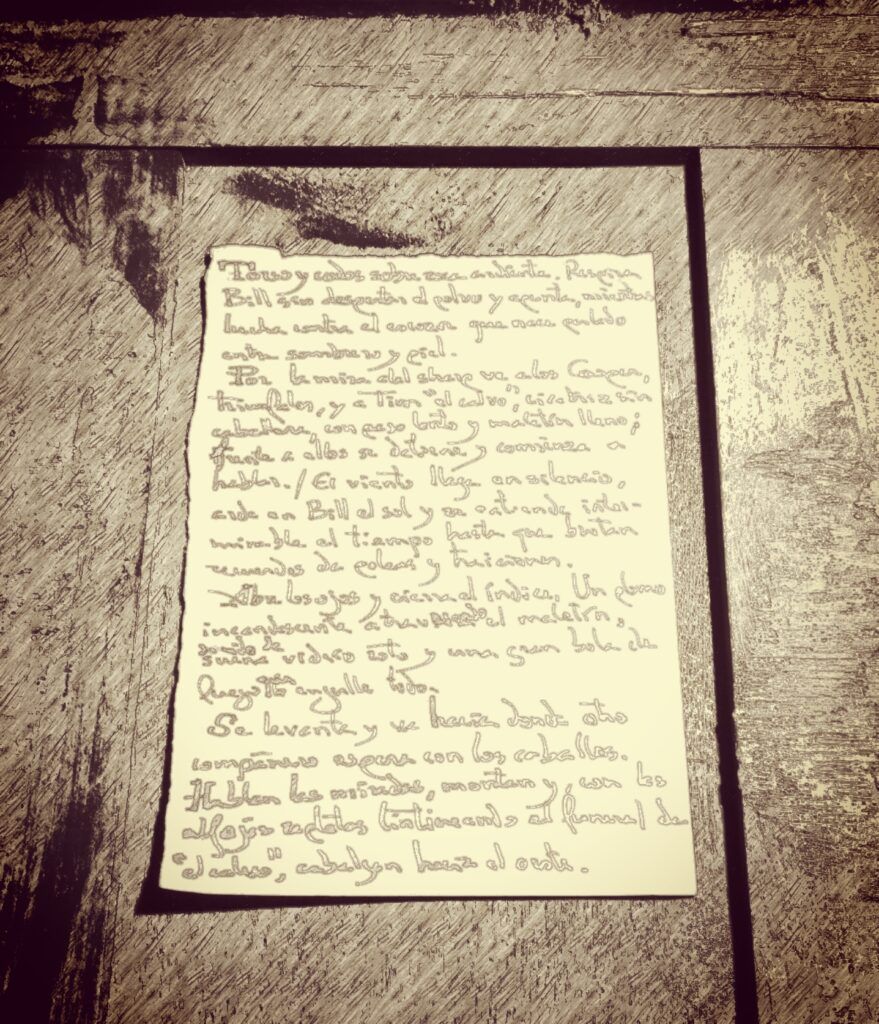 Torso y codos sobre roca ardiente. Respira
Bill sin despertar el polvo y apunta, mientras
lucha contra el que nace
entre sombrero y piel.
Por la mira del sharp ve a los
y a Tim "el calvo", cicatriz sin
cabellera, con paso lento y maletín lleno;
frente a ellos se detiene y comienza a
hablar. / El viento llega en silencio,
arde en Bill el sol y se extiende inter-
minable el tiempo hasta que brotan
recuerdos de peleas y traiciones.
Abre los ojos y cierra el índice. Un plomo
incandescente atraviesa el maletín,
vidrio roto y una gran bola de
fuego engulle todo.
Se levanta y va hacia donde otro
compañero espera con los caballos.
Hablan las miradas, montan y, con las
alforjas repletas tintineando al funeral de
"el calvo", cabalgan hacia el oeste.